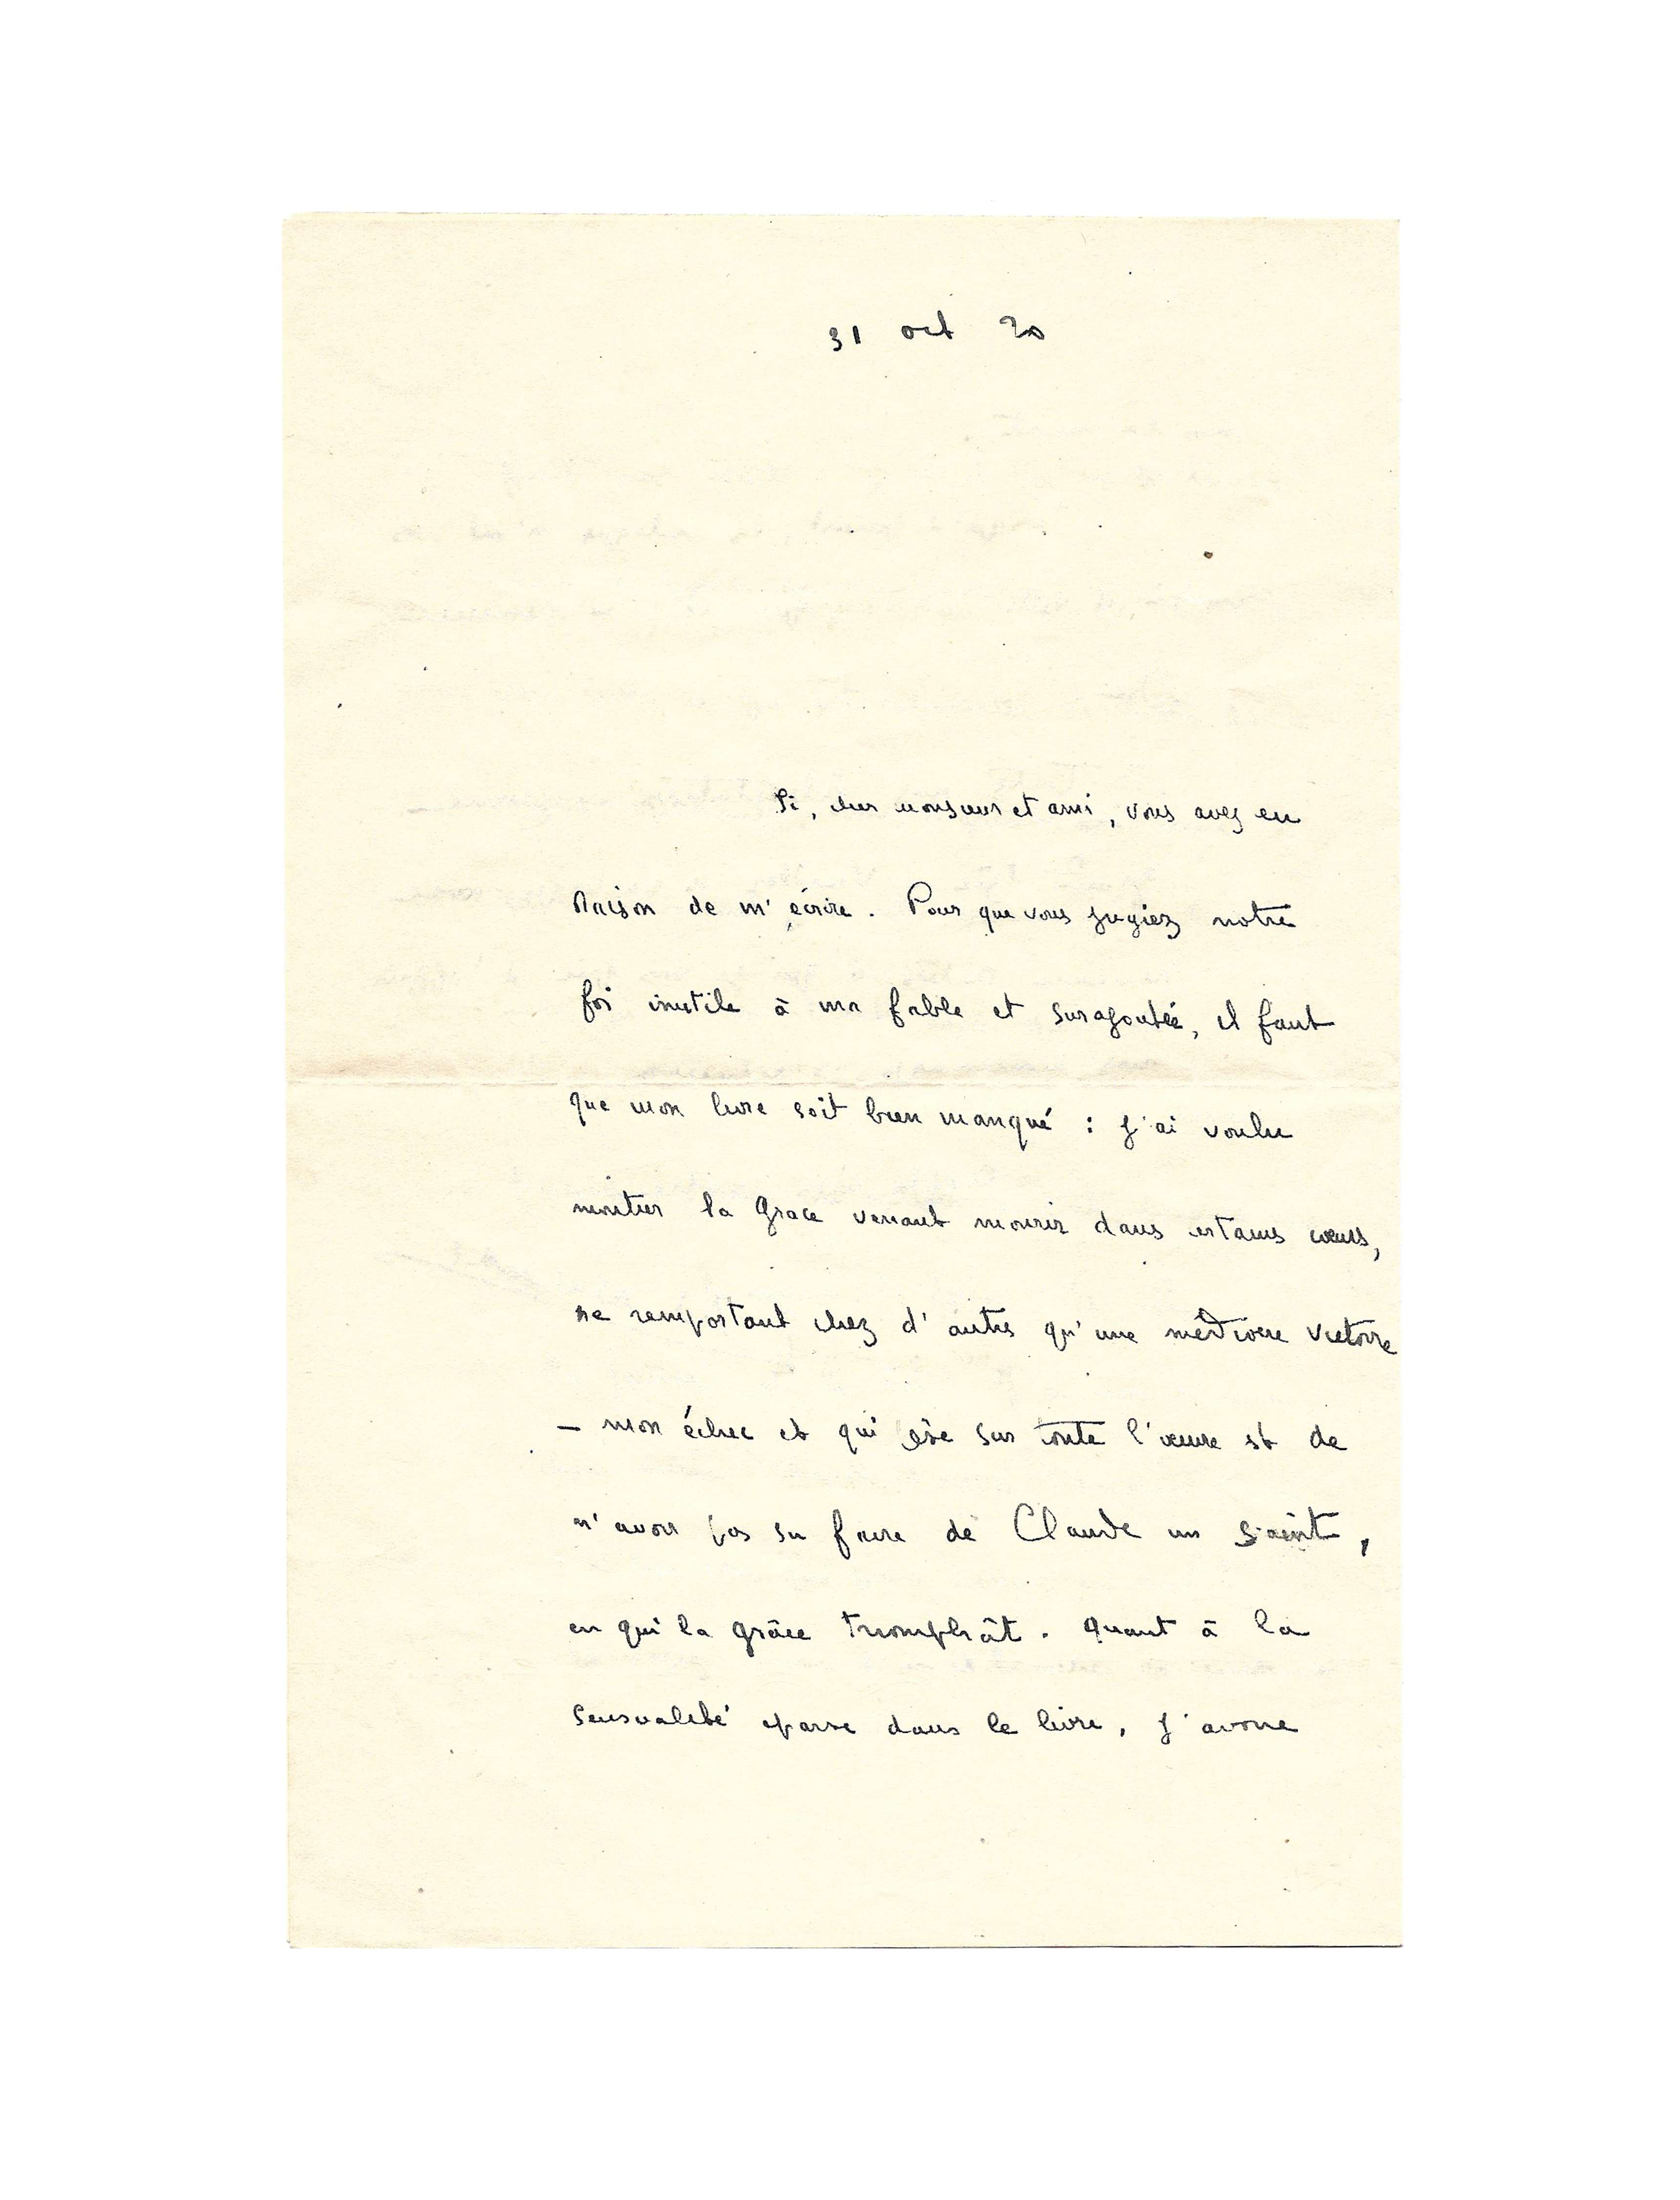 31 oct 20
Si, cher monsieur et ami, vous avez eu
raison de m'écrire. Pour que vous jugiez notre
foi inutile à ma fable et surajoutée, il faut
que mon livre soit bien manqué : j'ai voulu
montrer la Grace venant mourir dans certains cœurs,
ne remportant chez d'autres qu'une médiocre victoire
– mon échec et qui pèse sur toute l'œuvre est de
n'avoir pas su faire de Claude un saint,
en qui la grâce triomphât. Quant à la
sensualité eparse dans le livre, j'avoue